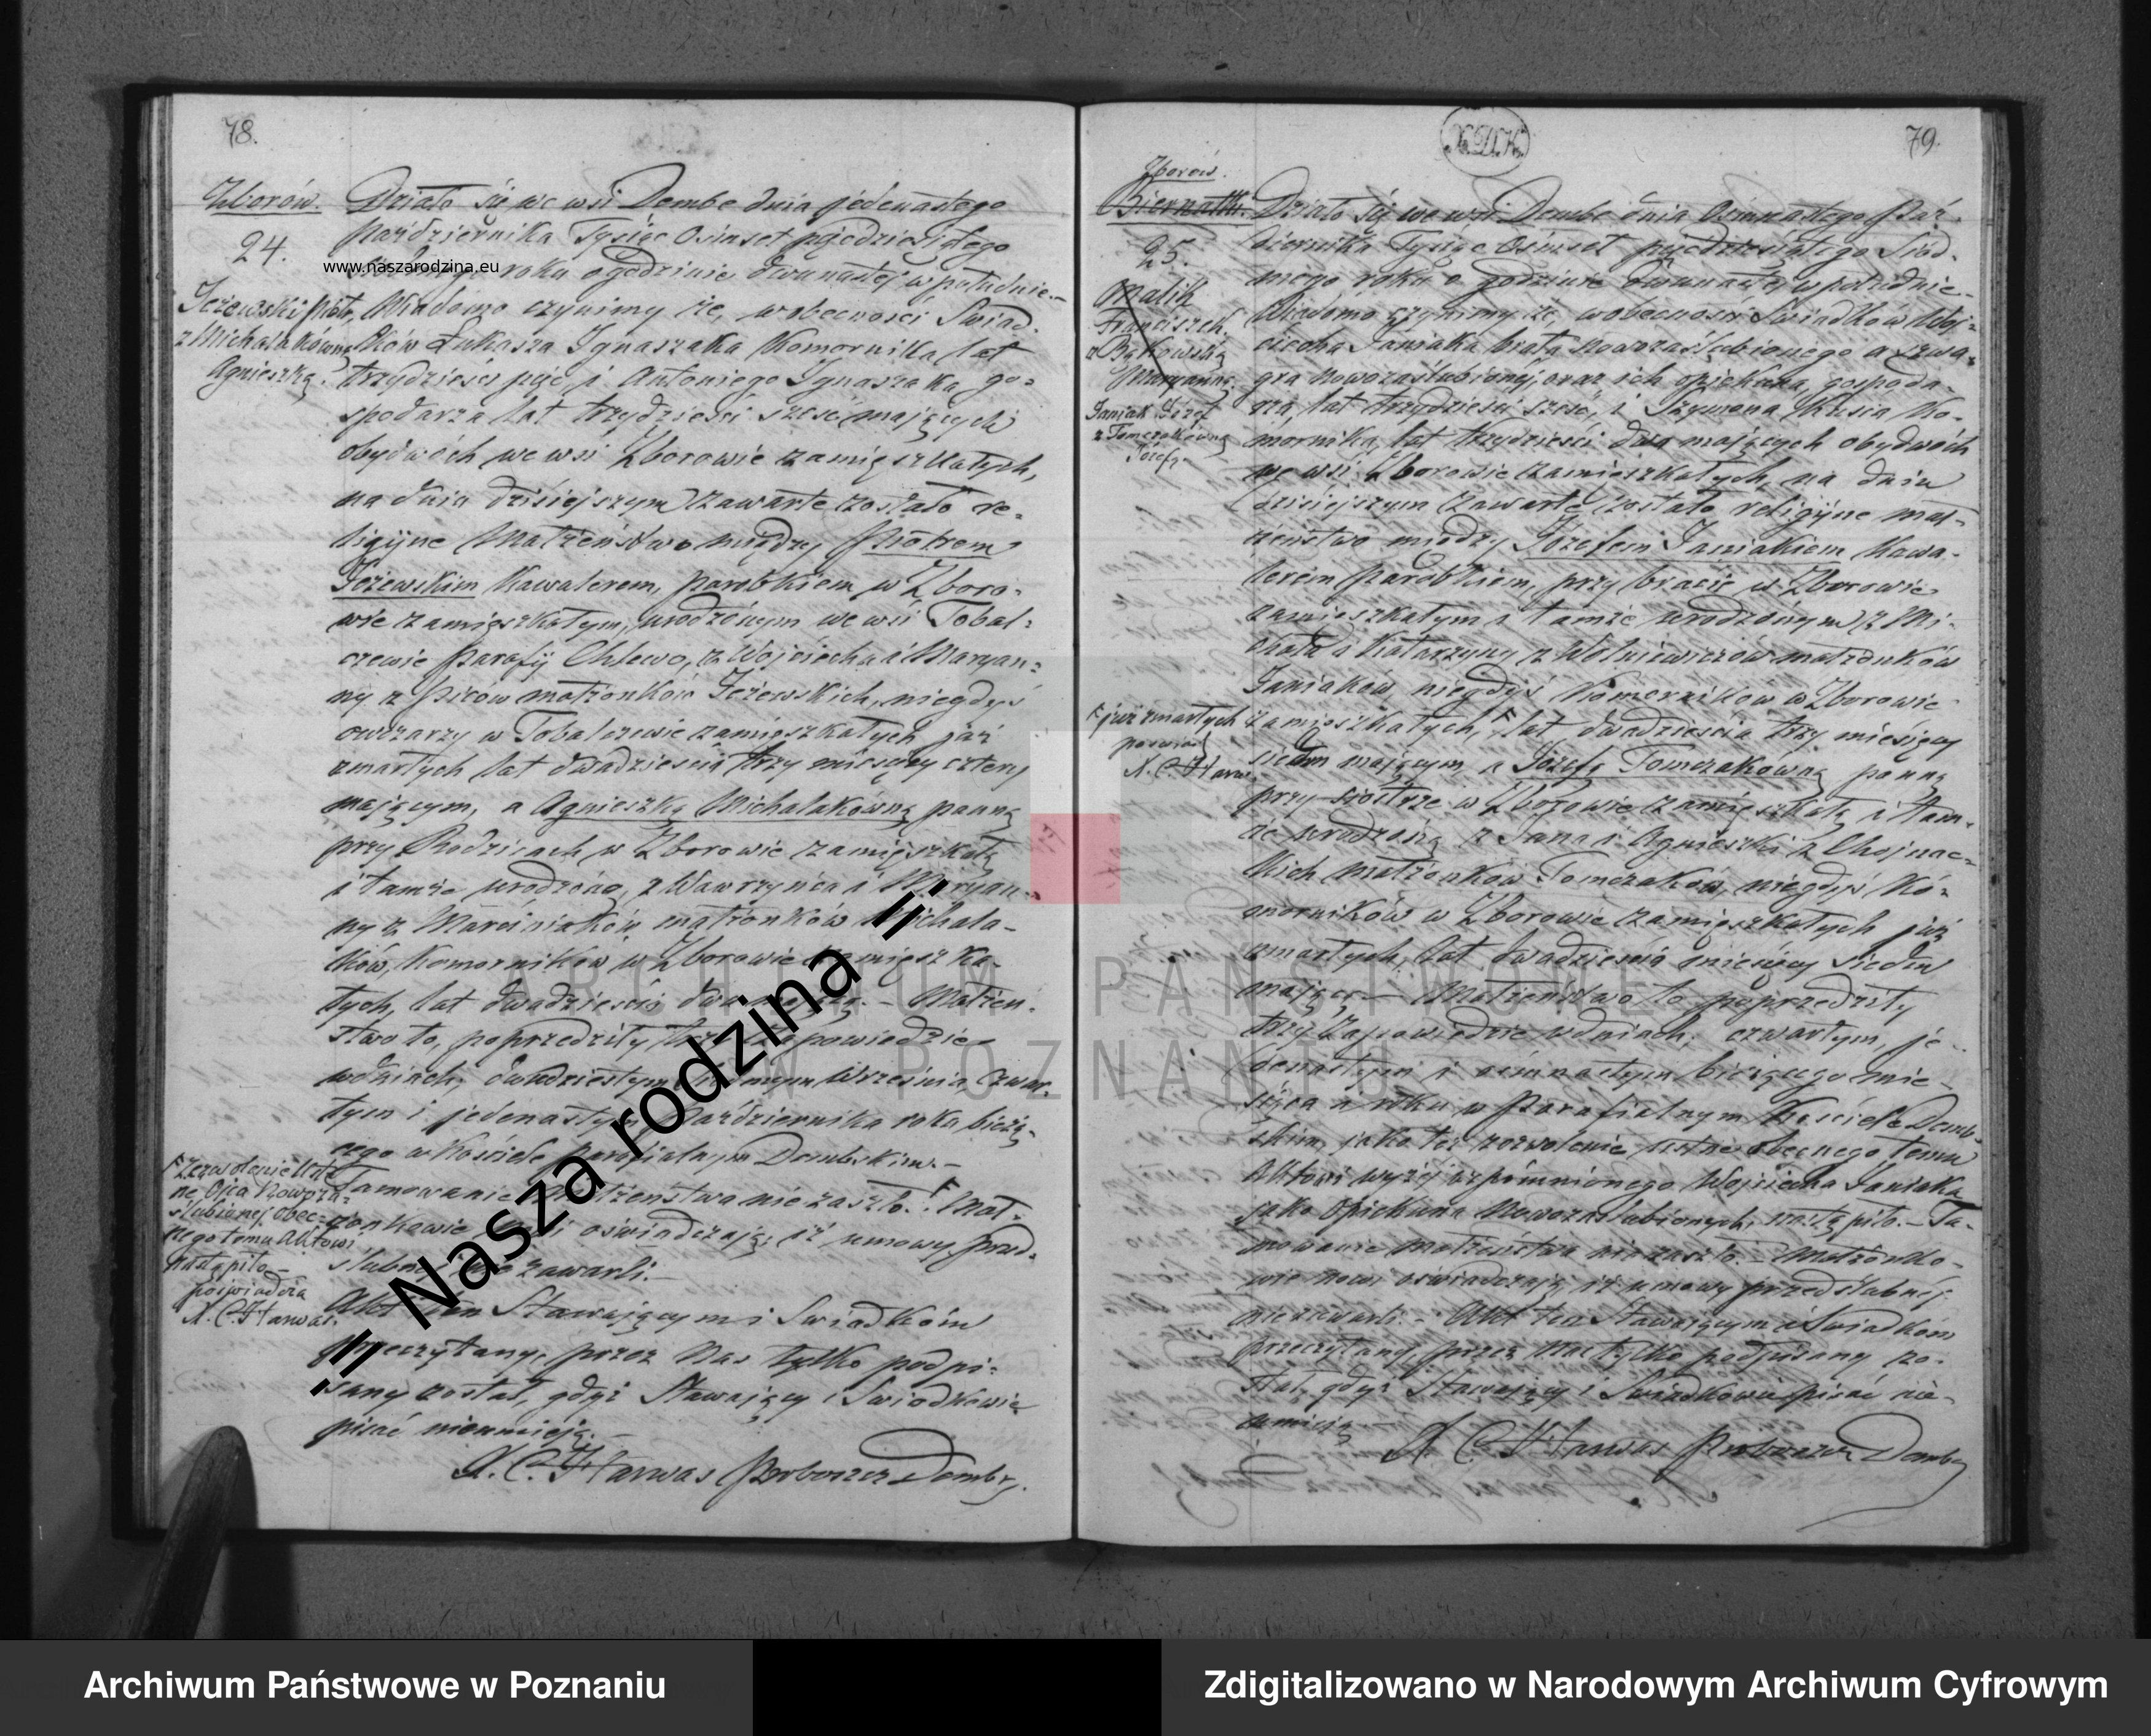 78.
Zborów.
24.
Jeżewski Piotr,
z Michalakówną
Agnieszką.
Działo się we wsi Dembe dnia jedenastego
Października Tysiąc Osimset pięcdziesiątego
roku o godzinie dwunastej w południe.
www.naszarodzina.eu
Wiadomo czynimy że, w obecności Swiad-
ków Łukasza Ignaszaka Komornika, lat
trzydzieści pięć, i Antoniego Ignaszaka go-
spodarza lat trzydzieści sześć mających
obydwóch we wsi Zborowie zamięszkałych,
na dniu dzisiejszym zawarte zostało re-
ligijne Małżeństwo między Piotrem
Jeżewskim Kawalerem, parobkiem w Zboro-
wie zamięszkałym, urodzonym we wsi Tobal-
czewie parafij Chlewo, z Wojciecha i Maryan-
ny z małżonków Jeżewskich, niegdyś
owczarzy w Tobalczewie zamięszkałych już
zmarłych lat dwadzieścia trzy miesięcy cztery
mającym, a Agnieszką Michalakówną panną
przy Rodzicach w Zborowie zamięszkałą
i tamże urodzoną, z Wawrzyńca i Maryan-
ny z Marciniaków małżonków Michala-
ków, Komorników w Zborowie zamięszka-
łych, lat dwadzieścia dwa mającą. – Małżeń-
stwo to, poprzedziły trzy zapowiedzie
w dniach, dwudziestym siódmym Września, czwar-
tym i jedenastym Października roku bieżą-
cego w Kościele parafialnym Dembskim. –
Tamowanie Małżeństwa nie zaszło. F. Mał-
żonkowie nowi oświadczają, iż umowy przed-
ślubnej nie zawarli. –
Akt ten Stawającym i Swiadkom
przeczytany, przez Nas tylko podpi-
sany został, gdyż Stawający i Swiadkowie
pisać nieumieją. –
X. C. Harwas Proboszcz Dembsj.
F Zezwolenie ust-
ne Ojca Nowoza-
ślubionej, obec-
nego temu Aktowi
nastąpiło –
poświadcza
X. C. Harwas.
!! Nasza rodzina !!
X.D.K.
79.
Zborów.
Biernatki.
25.
Malik
Franciszek
z Bąkowską
Maryanną.
Janiak Józef
z Tomczakówną
Józefą.
Działo się we wsi Dembe dnia Osimnastego Paź-
dziernika Tysiąc Osimset pięcdziesiątego Siód-
mego roku o godzinie dwunastej w południe.
Wiadomo czynimy że, w obecności Swiadków Woj-
ciecha Janiaka brata nowozaślubionego a szwa-
gra nowozaślubionej, oraz ich opiekuna, gospoda-
rza, lat trzydzieści sześć, i Szymona Kusia Ko-
mornika, lat trzydzieści dwa mających obydwóch
we wsi Zborowie zamieszkałych, na dniu
dzisiejszym zawarte zostało religijne mał-
żeństwo między Józefem Janiakiem Kawa-
lerem parobkiem, przy bracie w Zborowie
zamieszkałym i tamże urodzonym, z Mi-
chała i Katarzyny z Wolniewiczów małżonków
Janiaków, niegdyś Komorników w Zborowie
zamięszkałych, F lat dwadzieścia trzy miesięcy
siedm mającym, a Józefą Tomczakówną panną
przy siostrze w Zborowie zamięszkałą i tam-
że urodzoną z Jana i Agnieszki z Chojnac-
kich małżonków Tomczaków, niegdyś Ko-
morników w Zborowie zamięszkałych już
zmarłych, lat dwadzieścia miesięcy siedm
mającą. – Małżeństwo to poprzedziły
trzy zapowiedzie w dniach, czwartym, je-
denastym i osimnastym bieżącego mie-
siąca i roku w Parafialnym Kościele Demb-
skim, jako też zezwolenie ustne obecnego temu
Aktowi wyżej wspomnionego Wojciecha Janiaka
jako Opiekuna Nowozaślubionych, nastąpiło. – Ta-
mowanie małżeństwa nie zaszło. – Małżonko-
wie nowi oświadczają, iż umowy przedślubnej
nie zawarli. – Akt ten Stawającym i Swiadkom
przeczytany, przez Nas tylko podpisany zo-
stał, gdyż Stawający i Swiadkowie pisać nie-
umieją. –
X. C. Harwas Proboszcz Dembsj
F już zmarłych
poświad.
X. C. Harw.
ARCHIWUM PAŃSTWOWE
W POZNANIU
Archiwum Państwowe w Poznaniu
Zdigitalizowano w Narodowym Archiwum Cyfrowym